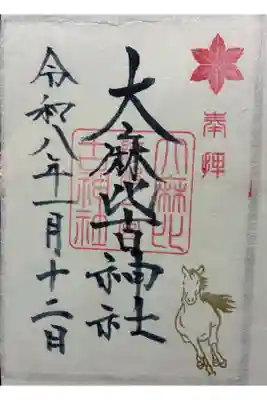 奉拝
大麻比古神社
令和八年一月十二日
大麻比
古神社